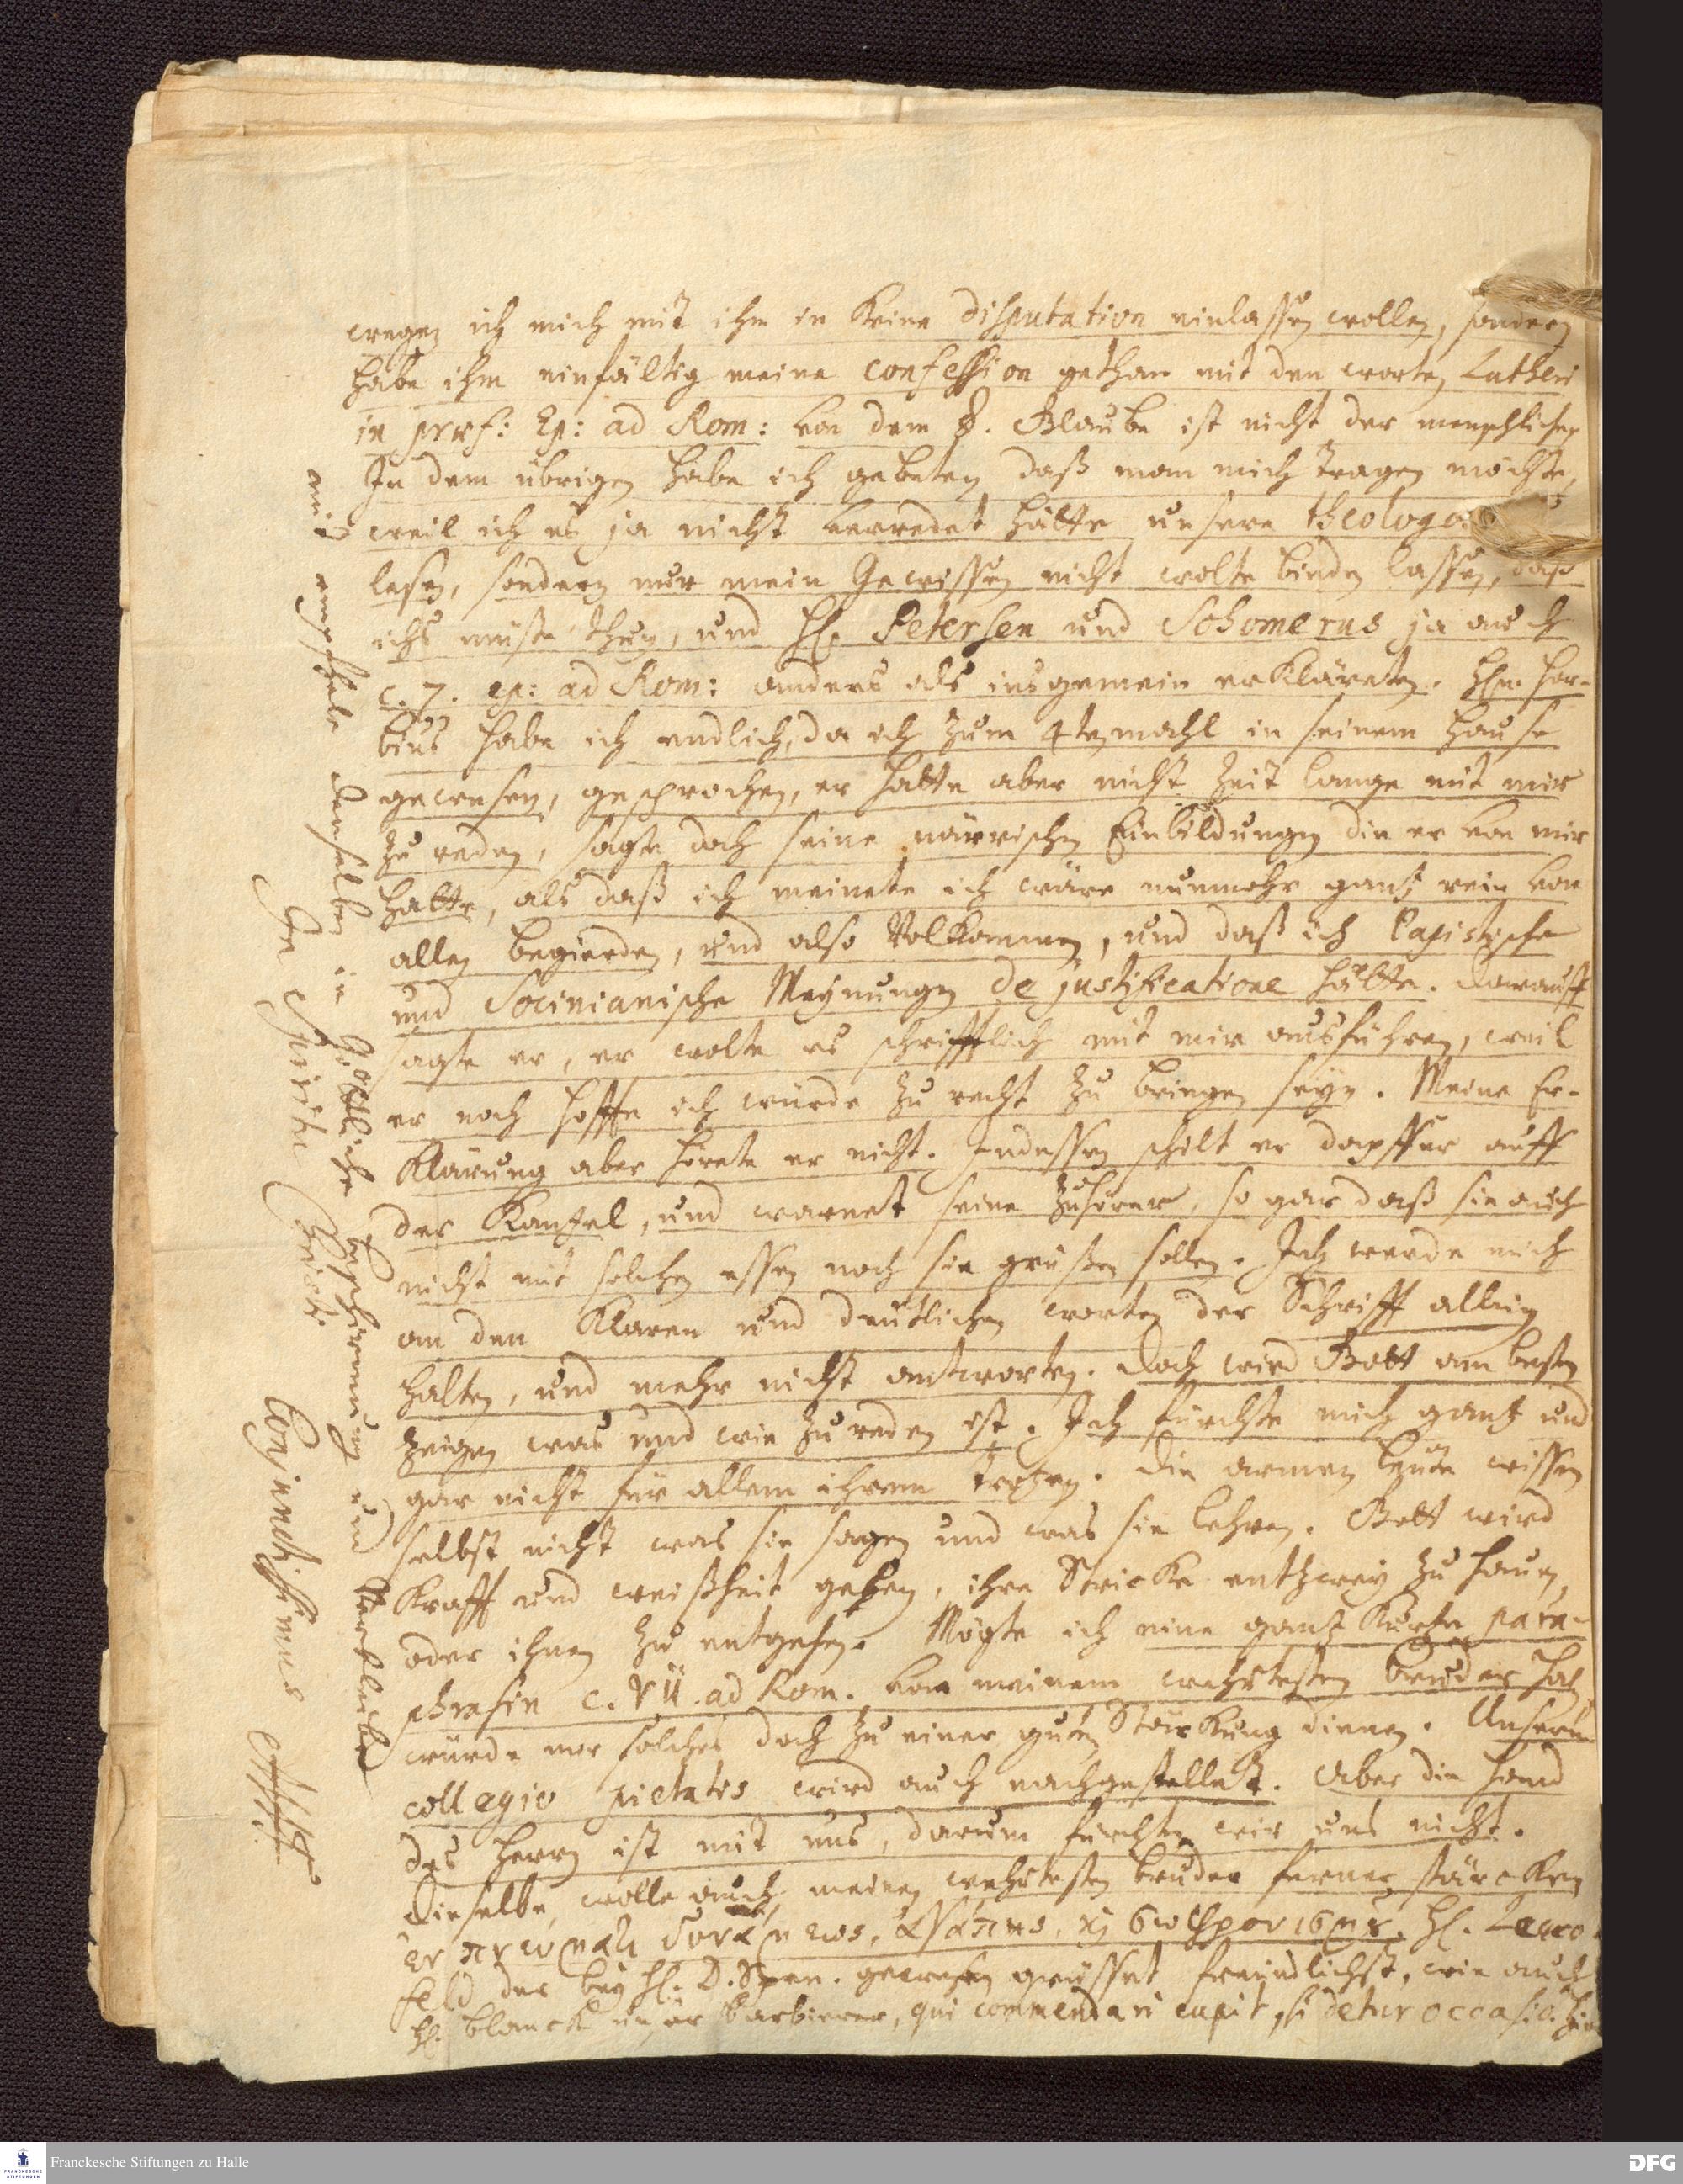 wegen ich mich mit ihm in keine disputation einlassen wollen, sondern
habe ihm einfältig meine confession gethan mit den worten Lutheri
in præf: Ep: ad Rom: von dem Glaube ist nicht der menschliche
In dem übrigen habe ich gebeten daß man mich tragen möchte,
weil ich es ja nicht verredet hätte unsere theologos
lesen, sondern nur mein Gewissen nicht wolte binden lassen, daß
ichs müste thun, und H. Petersen und Schomerus ja auch
c. 7. ep: ad Rom: anders als insgemein erkläreten. Hln. Hor-
bius habe ich endlich, da ich zum 4ten mahl in seinem Hause
gewesen, gesprochen, er hatte aber nicht Zeit lange mit mir
zu reden, sagte doch seine närrischen Einbildungen die er von mir
hatte, als daß ich meinete ich wäre nunmehr gantz rein von
allen begierden, und also Volkommen, und daß ich Papistische
und Socinianische Meynungen de justificatione hätte. Darauff
sagte er, er wolte es schrifftlich mit mir ausführen, weil
er noch hoffe ich würde zu recht zu bringen seyn. Meine Er-
klärung aber hörete er nicht. Indessen schilt er dapffer auff
der Kantzel, und warnet seine Zuhörer, so gar daß sie auch
nicht mit solchen essen noch sie grüßen sollen. Ich werde mich
an den klaren und deutlichen worten der Schrifft allein
halten, und mehr nicht antworten. Doch wird Gott am besten
zeigen was und wie zu reden ist. Ich fürchte mich gantz und
gar nicht für allem ihrem trotzen. Die armen leute wissen
selbst nicht was sie sagen und was sie lehren. Gott wird
Krafft und weißheit geben, ihre Stricke entzwey zu hauen,
oder ihnen zu entgehen. Mögte ich eine gantz kurtze para-
phrasin c. VII. ad Rom. von meinem wehrtesten bruder haben
würde mir solches doch zu einer guten Stärckung dienen. Unserm
collegio pietatis wird auch nachgestellet. Aber die Hand
des Herrn ist mit uns, darum fürchten wir uns nicht.
Dieselbe wolle auch meinen wehrtesten bruder ferner stärcken
der bey H. D. Spen. gewesen grüsset freundlichst, wie auch
H. Blanck unser Barbierer, qui commendari cupit, si detur occasio.
mich empfehle denselben in Göttliche beschirmung und verbleibe